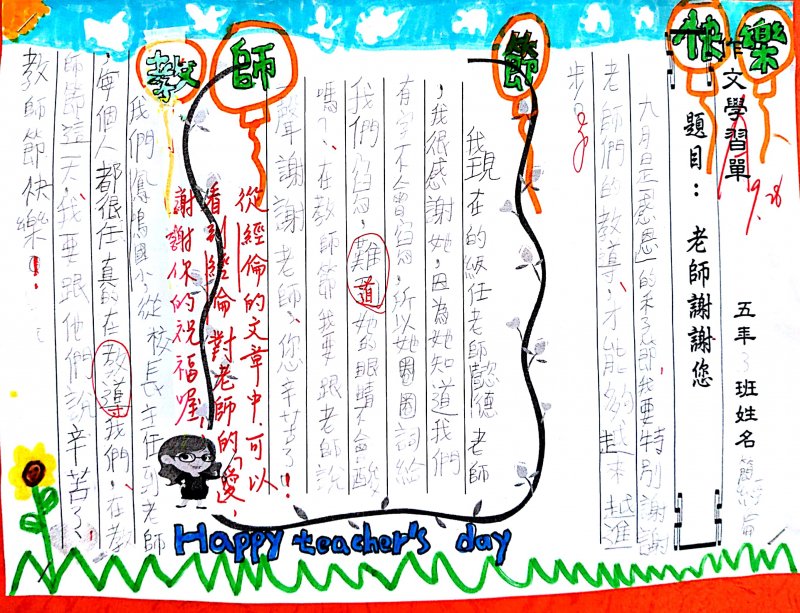 教師節快樂
作文學習單
9.28
題目：老師謝謝您
五年3班姓名簡經倫
九月是感恩的季節,我要特別謝謝
老師們的教導,才能夠我越來越進
步。
我現在的級任老師懿德老師
,我很感謝她,因為她知道我們
有字不會寫,所以她圈圈詞給
我們寫,難道她的眼睛不會酸
嗎?在教師節我要跟老師說
聲謝謝老師,您辛苦了!
從經倫的文章中,可以
看到經倫對老師的「愛」,
謝謝你的祝福喔!
我們鳳鳴國小,從校長主任到老師
,每個人都很任真的在教導我們,在教
師節這一天,我要跟他們說辛苦了,
教師節快樂!
Happy teacher's day